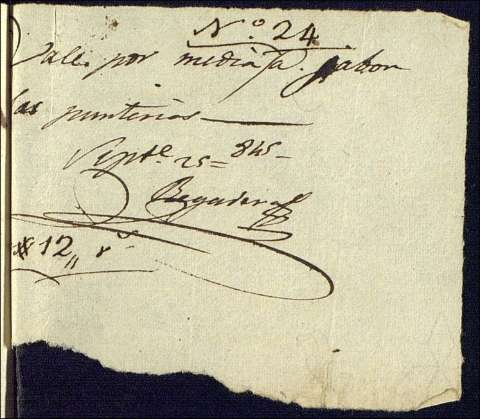 N.o 24
Vale por media @. jabon
las punterias
Septe. 25 = 845 -
# 12,, rs